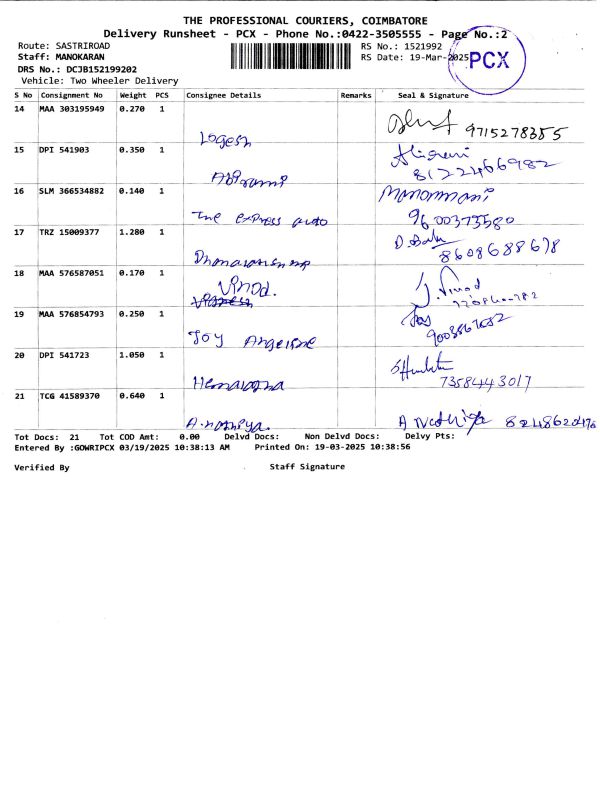 THE PROFESSIONAL COURIERS, COIMBATORE
Delivery Runsheet - PCX - Phone No.:0422-3505555 - Page No.:2
Route: SASTRIROAD
RS No.: 1521992
Staff: MANOKARAN
RS Date: 19-Mar-2025
PCX
DRS No.: DCJB152199202
Vehicle: Two Wheeler Delivery
S No Consignment No Weight PCS Consignee Details Remarks Seal & Signature
14 MAA 303195949 0.270 1
Logesh 9715278355
15 DPI 541903 0.350 1
Abirami 8122466982
16 SLM 366534882 0.140 1 Manonmani
The express auto 9600373580
17 TRZ 15009377 1.280 1 D. Babu
8608688678
18 MAA 576587051 0.170 1
Vinod. J. Vinod
19 MAA 576854793 0.250 1
Joy
20 DPI 541723 1.050 1
7358443017
21 TCG 41589370 0.640 1
Tot Docs: 21 Tot COD Amt: 0.00 Delvd Docs: Non Delvd Docs: Delvy Pts:
Entered By :GOWRIPCX 03/19/2025 10:38:13 AM Printed On: 19-03-2025 10:38:56
Verified By Staff Signature